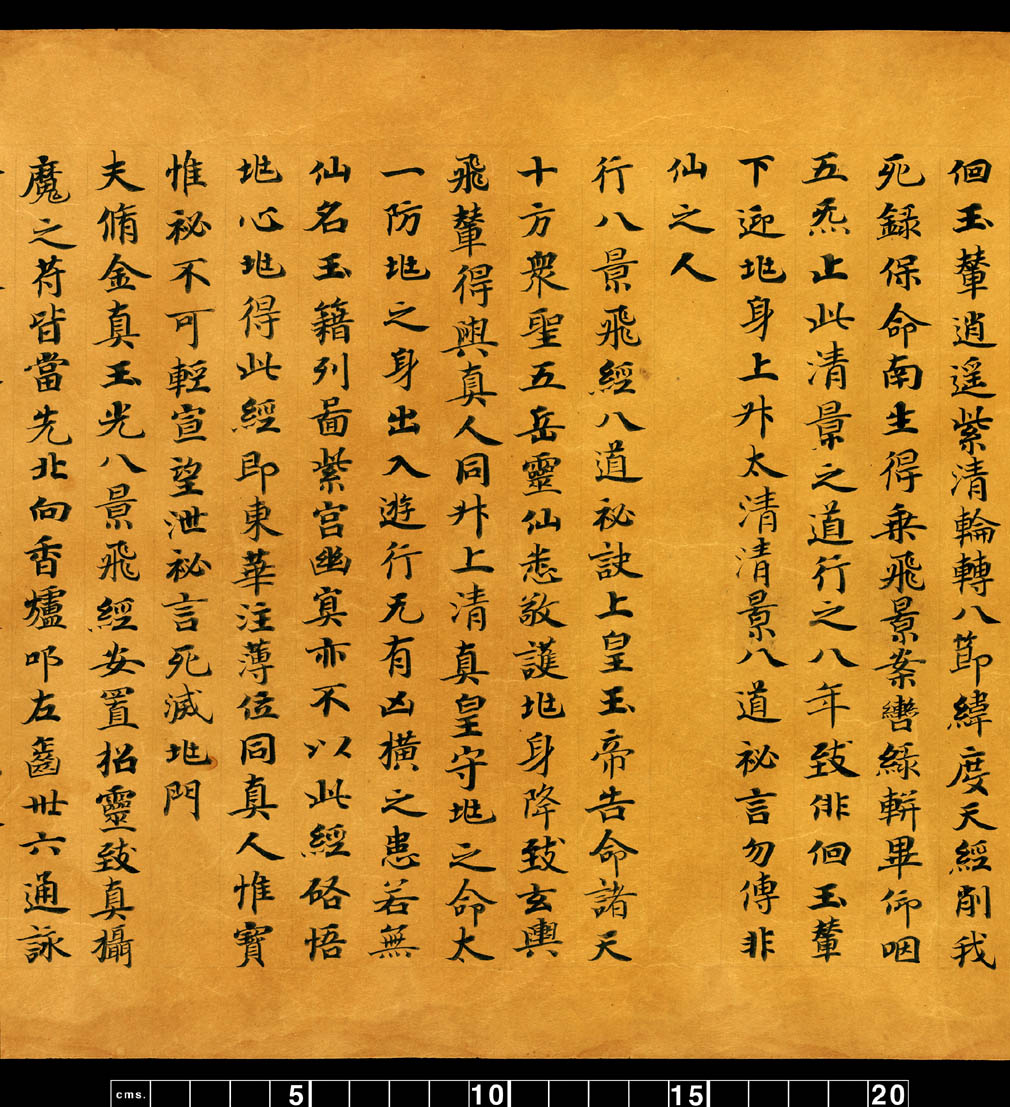 佪玉輦逍遥紫清輪轉八節緯度天經削我
死録保命南生得乗飛景案轡緑軿畢仰咽
五炁止此清景之道行之八年致俳佪玉輦
下迎地身上升太清清景八道祕言勿傳非
仙之人
行八景飛經八道祕訣上皇玉帝告命諸天
十方衆聖五岳靈仙悉敬護地身降致玄輿
飛輦得與真人同升上清真皇守地之命太
一防地之身出入遊行无有凶横之患若無
仙名玉籍列啚紫宫幽冥亦不以此經啓悟
地心地得此經即東華注薄位同真人惟寶
惟祕不可輕宣望泄祕言死滅地門
夫脩金真玉光八景飛經安置招靈致真攝
魔之符皆當先北向香爐叩左齒卅六通詠